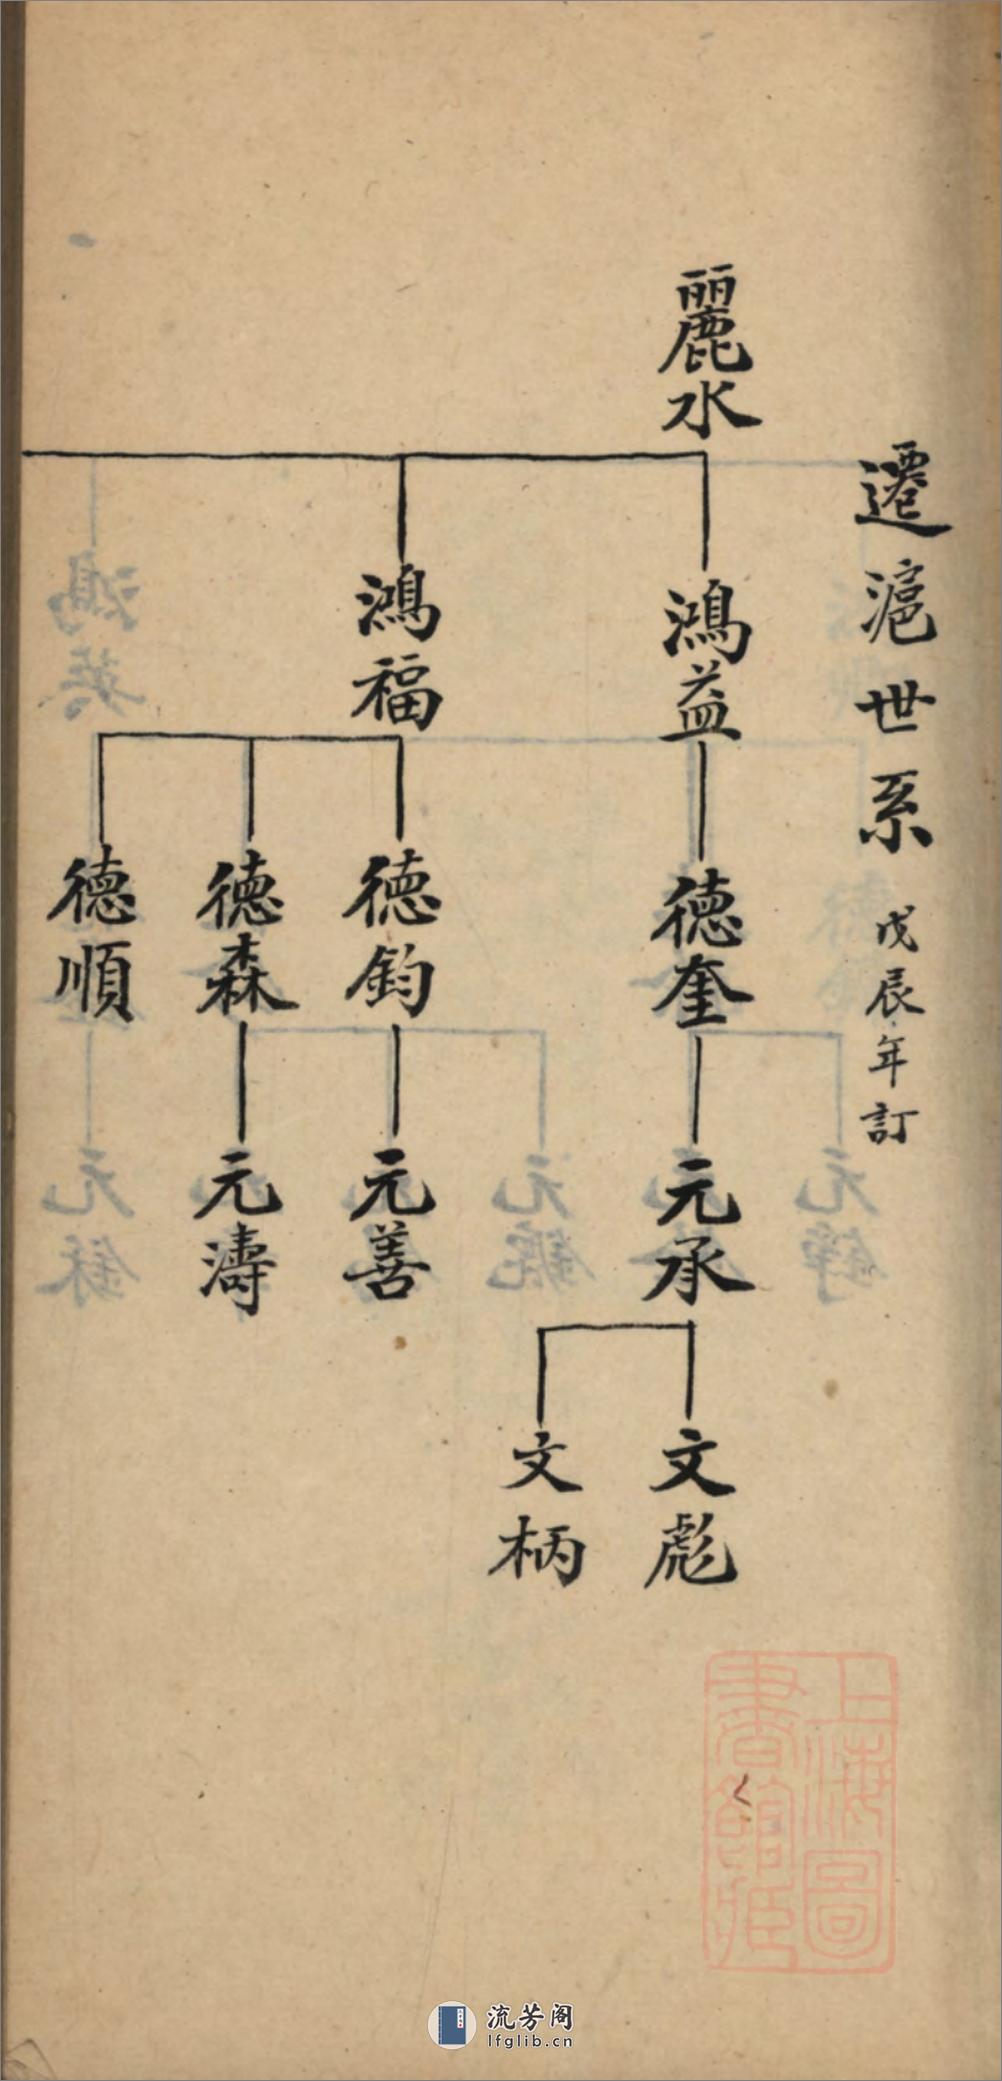 遷滬世系 戊辰年訂
麗水
鴻益
鴻福
德奎
德鈞
德森
德順
元承
元善
元濤
文彪
文柄
上海圖
書館藏
流芳阁
lfglib.cn